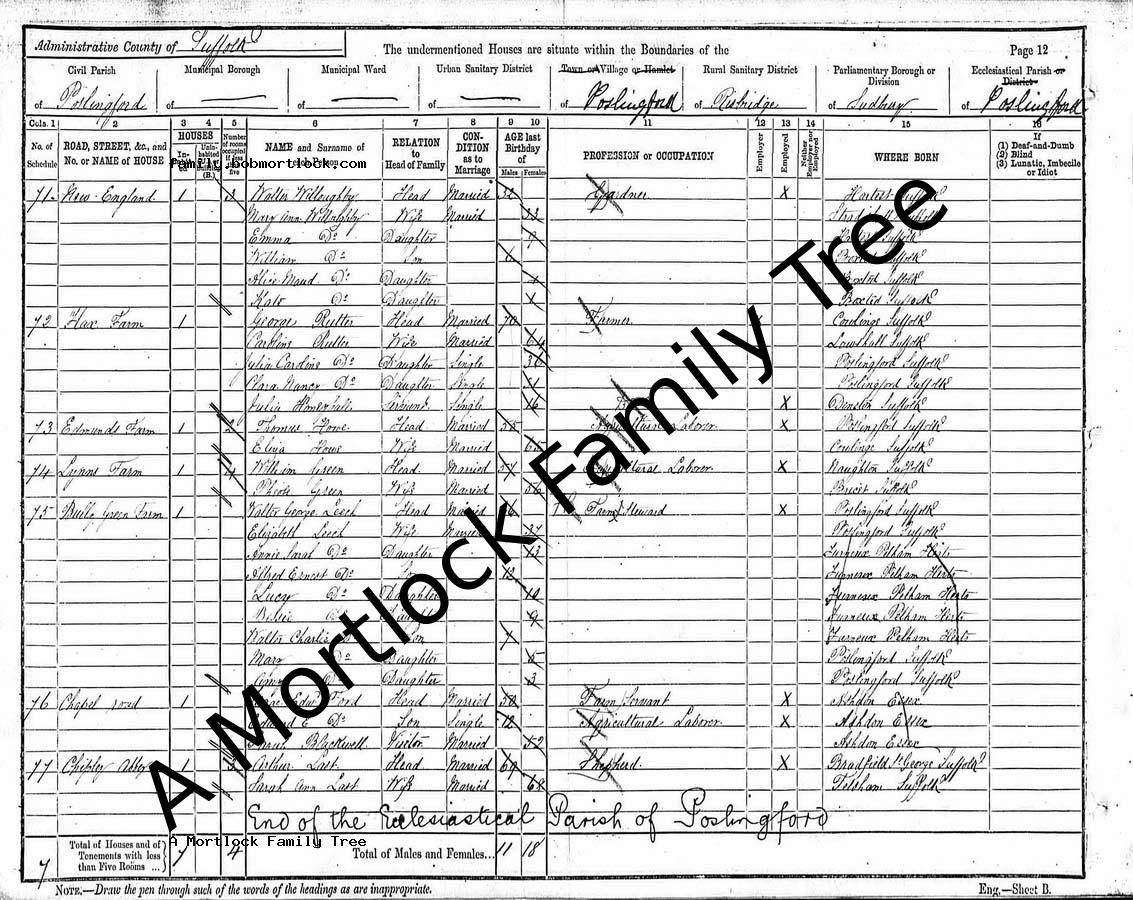 Administrative County of Suffolk
The undermentioned Houses are situate within the Boundaries of the
Page 12
Civil Parish of Poslingford
Municipal Borough of
Municipal Ward of
Urban Sanitary District of
Town or Village or Hamlet of Poslingford
Rural Sanitary District of Risbridge
Parliamentary Borough or Division of Sudbury
Ecclesiastical Parish or District of Poslingford
Cols. 1 2 3 4 5 6 7 8 9 10 11 12 13 14 15 16
No. of Schedule
ROAD, STREET, &c., and No. or NAME of HOUSE
HOUSES
Number of rooms occupied if less than five
NAME and Surname of
RELATION to Head of Family
CONDITION as to Marriage
AGE last Birthday of
Males Females
PROFESSION or OCCUPATION
Employer
Employed
Neither Employer nor Employed
WHERE BORN
If (1) Deaf-and-Dumb (2) Blind (3) Lunatic, Imbecile or Idiot
family.bobmortlock.com
71 New England 1 3 Walter Willoughby Head Married 32 Gardner X Suffolk
Mary Ann Willoughby Wife Married 33 Suffolk
Emma Do Daughter Suffolk
William Do Son 6 Boxted Suffolk
Alice Maud Do Daughter Boxted Suffolk
Kate Do Daughter Boxted Suffolk
72 Farm 1 George Rutter Head Married 70 Farmer Cowlinge Suffolk
Caroline Rutter Wife Married 64 Suffolk
Julia Caroline Do Daughter Single Poslingford Suffolk
Clara Nancy Do Daughter Single Poslingford Suffolk
Julia Servant Single 16 X Denston Suffolk
73 Edmunds Farm 1 2 Thomas Howe Head Married Laborer X Poslingford Suffolk
Eliza Howe Wife Married Cowlinge Suffolk
74 Lynns Farm 1 4 William Green Head Married 57 Agricultural Laborer X Naughton Suffolk
Phebe Green Wife Married 56 Bricet Suffolk
75 Bully Green Farm 1 Walter George Leech Head Married 36 Farm Steward X Poslingford Suffolk
Elizabeth Leech Wife Married 37 Poslingford Suffolk
Annie Sarah Do Daughter 13 Furneux Pelham Herts
Alfred Ernest Do Son 12 Furneux Pelham Herts
Lucy Do Daughter 10 Furneux Pelham Herts
Daughter 9 Furneux Pelham Herts
Walter Charles Son 7 Furneux Pelham Herts
Mary Do Daughter 5 Poslingford Suffolk
Daughter 3 Poslingford Suffolk
76 Chapel road 1 Ford Head Married 50 Farm Servant X Ashdon Essex
Edward E Do Son Single 12 Agricultural Laborer X Ashdon Essex
Sarah Blackwell Visitor Married 52 Ashdon Essex
77 Chipley Abbey 1 3 Arthur Last Head Married 69 Shepherd X Bradfield St George Suffolk
Sarah Ann Last Wife Married 69 Felsham Suffolk
End of the Ecclesiastical Parish of Poslingford
7 Total of Houses and of Tenements with less than Five Rooms ... 7 4 Total of Males and Females... 11 18
A Mortlock Family Tree
NOTE.—Draw the pen through such of the words of the headings as are inappropriate.
Eng.—Sheet B.
A Mortlock Family Tree